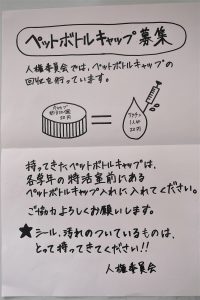 ペットボトルキャップ募集
人権委員会では、ペットボトルキャップの
回収を行っています。
キャップ
20円
=
ワクチン
1人分
20円
持ってきたペットボトルキャップは、
各学年の特活室前にある
ペットボトルキャップ入れに入れてください。
ご協力よろしくお願いします。
★シール、汚れのついているものは、
とって持ってきてください!!
人権委員会